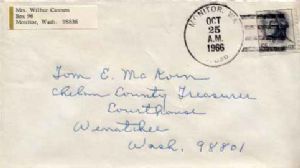 Mrs. Wilbur Cannon
Box 98
Monitor, Wash. 98836
MONITOR, WA
OCT
25
A.M.
1966
Tom E. McKoin
Chelan County Treasurer
Courthouse
Wenatchee
Wash. 98801